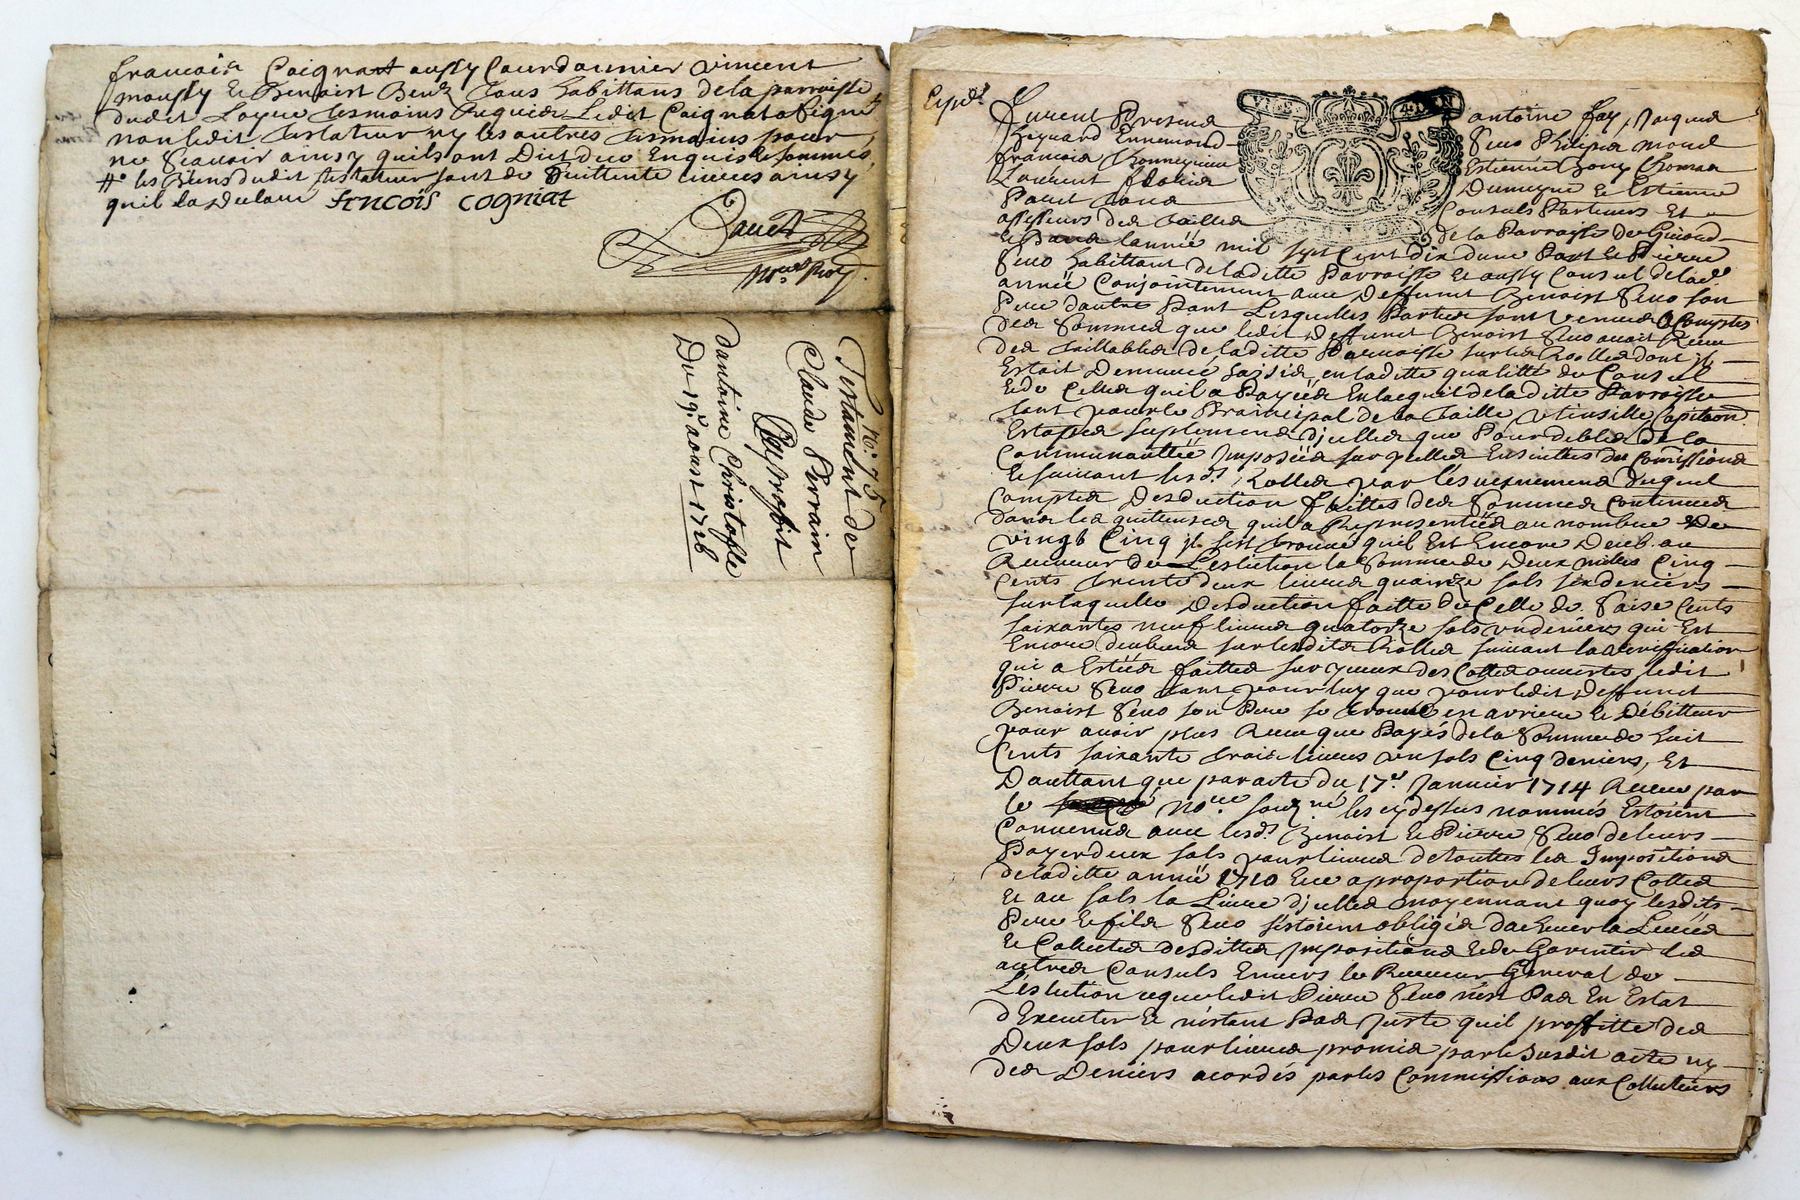 francois Coignat aussy Courdannier vincent
mously et Benoist Benu tous habittans de la parroisse
dudit Loyre tesmoins requis Ledit Coignat a signé
non ledit testateur ny les autres tesmoins pour
ne scavoir ainsy quils ont Dict de ce Enquis et sommés
les Biens dudit testateur sont de Huittente livres ainsy
quil la declaré frncois cogniat
Davet
No.re Roy.
N.o 75
Testament de
Claude Perrain
dantaine Christofle
Du 19.e aoust 1716
Expé.
furent Presens antoine fay, Jaques
Seno Philipe
francois Estienne Thomas
Laurent Dumeyne et Estienne
Consuls Parteurs Et
asseseurs des tailles de la Parroisse de
l'année mil sept Cent dix dune Part Et Pierre
Seno habittant de laditte Parroisse Et aussy Consul de lad.e
année Conjointement avec Deffunt Benoist Seno son
Pere dautre Part Lesquelles Parties sont venues a Comptes
des Sommes que ledit Deffunct Benoist Seno avoit Receu
des taillables de laditte Parroisse sur les Rolles dont il
Estoit Demeuré saisie, en laditte qualitté de Consul
et de Celles quil a Payées En lacquit de laditte Parroisse
tant pour le Principal de la taille Utinsille Capitaon
Estapes suplemens djcelles que Pour debtes de la
Communauttée Imposées sur jcelles Ensuittes des Commissions
Et suivant lesd. Rolles par lesvenemens duquel
Comptes Desduction faittes des Sommes Contenues
dans les quittences quil a Representées au nombre de
vingt Cinq jl sest trouvé quil Est Encore Deub. au
Receveur de Leslection la Somme de Deux milles Cinq
Cents trente deux livres quatorze sols six deniers
sur laquelle Desduction faitte de Celle de Saise Cents
soixantes neuf livres quatorze sols un deniers qui Est
Encore deubue sur lesdites Rolles suivant la veriffication
qui a Estée faittes sur yceux des Cottes ouvertes ledit
Pierre Seno tant pour luy que pour ledit Deffunct
Benoist Seno son Pere se trouve en arriere Et Débitteur
pour avoir plus Receu que Payés de la Somme de huit
Cents soixante trois livres un sols Cinq deniers, Et
Dauttant que par acte du 17.e Janvier 1714 Receu par
le No.re souz.né les cydessus nommés Estoient
Convenus avec lesd. Benoist Et Pierre Seno de leurs
Payer deux sols pour livres de touttes les Impositions
de laditte année 1710 Et ce a proportion de leurs Cottes
Et au sols la Livre djcelles moyennant quoy lesdits
Pere Et fils Seno s'estoient obligés dachever la Levées
Et Collectes desdittes jmpositions Et de Garentir les
autres Consuls Envers le Receveur General de
Leslection ce que ledit Pierre Seno n'est Pas En Estat
d'Executer Et n'estant Pas juste quil proffitte des
Deux sols pour livres promis par le Susdit acte ny
des Deniers acordés par les Commissions aux Collecteurs